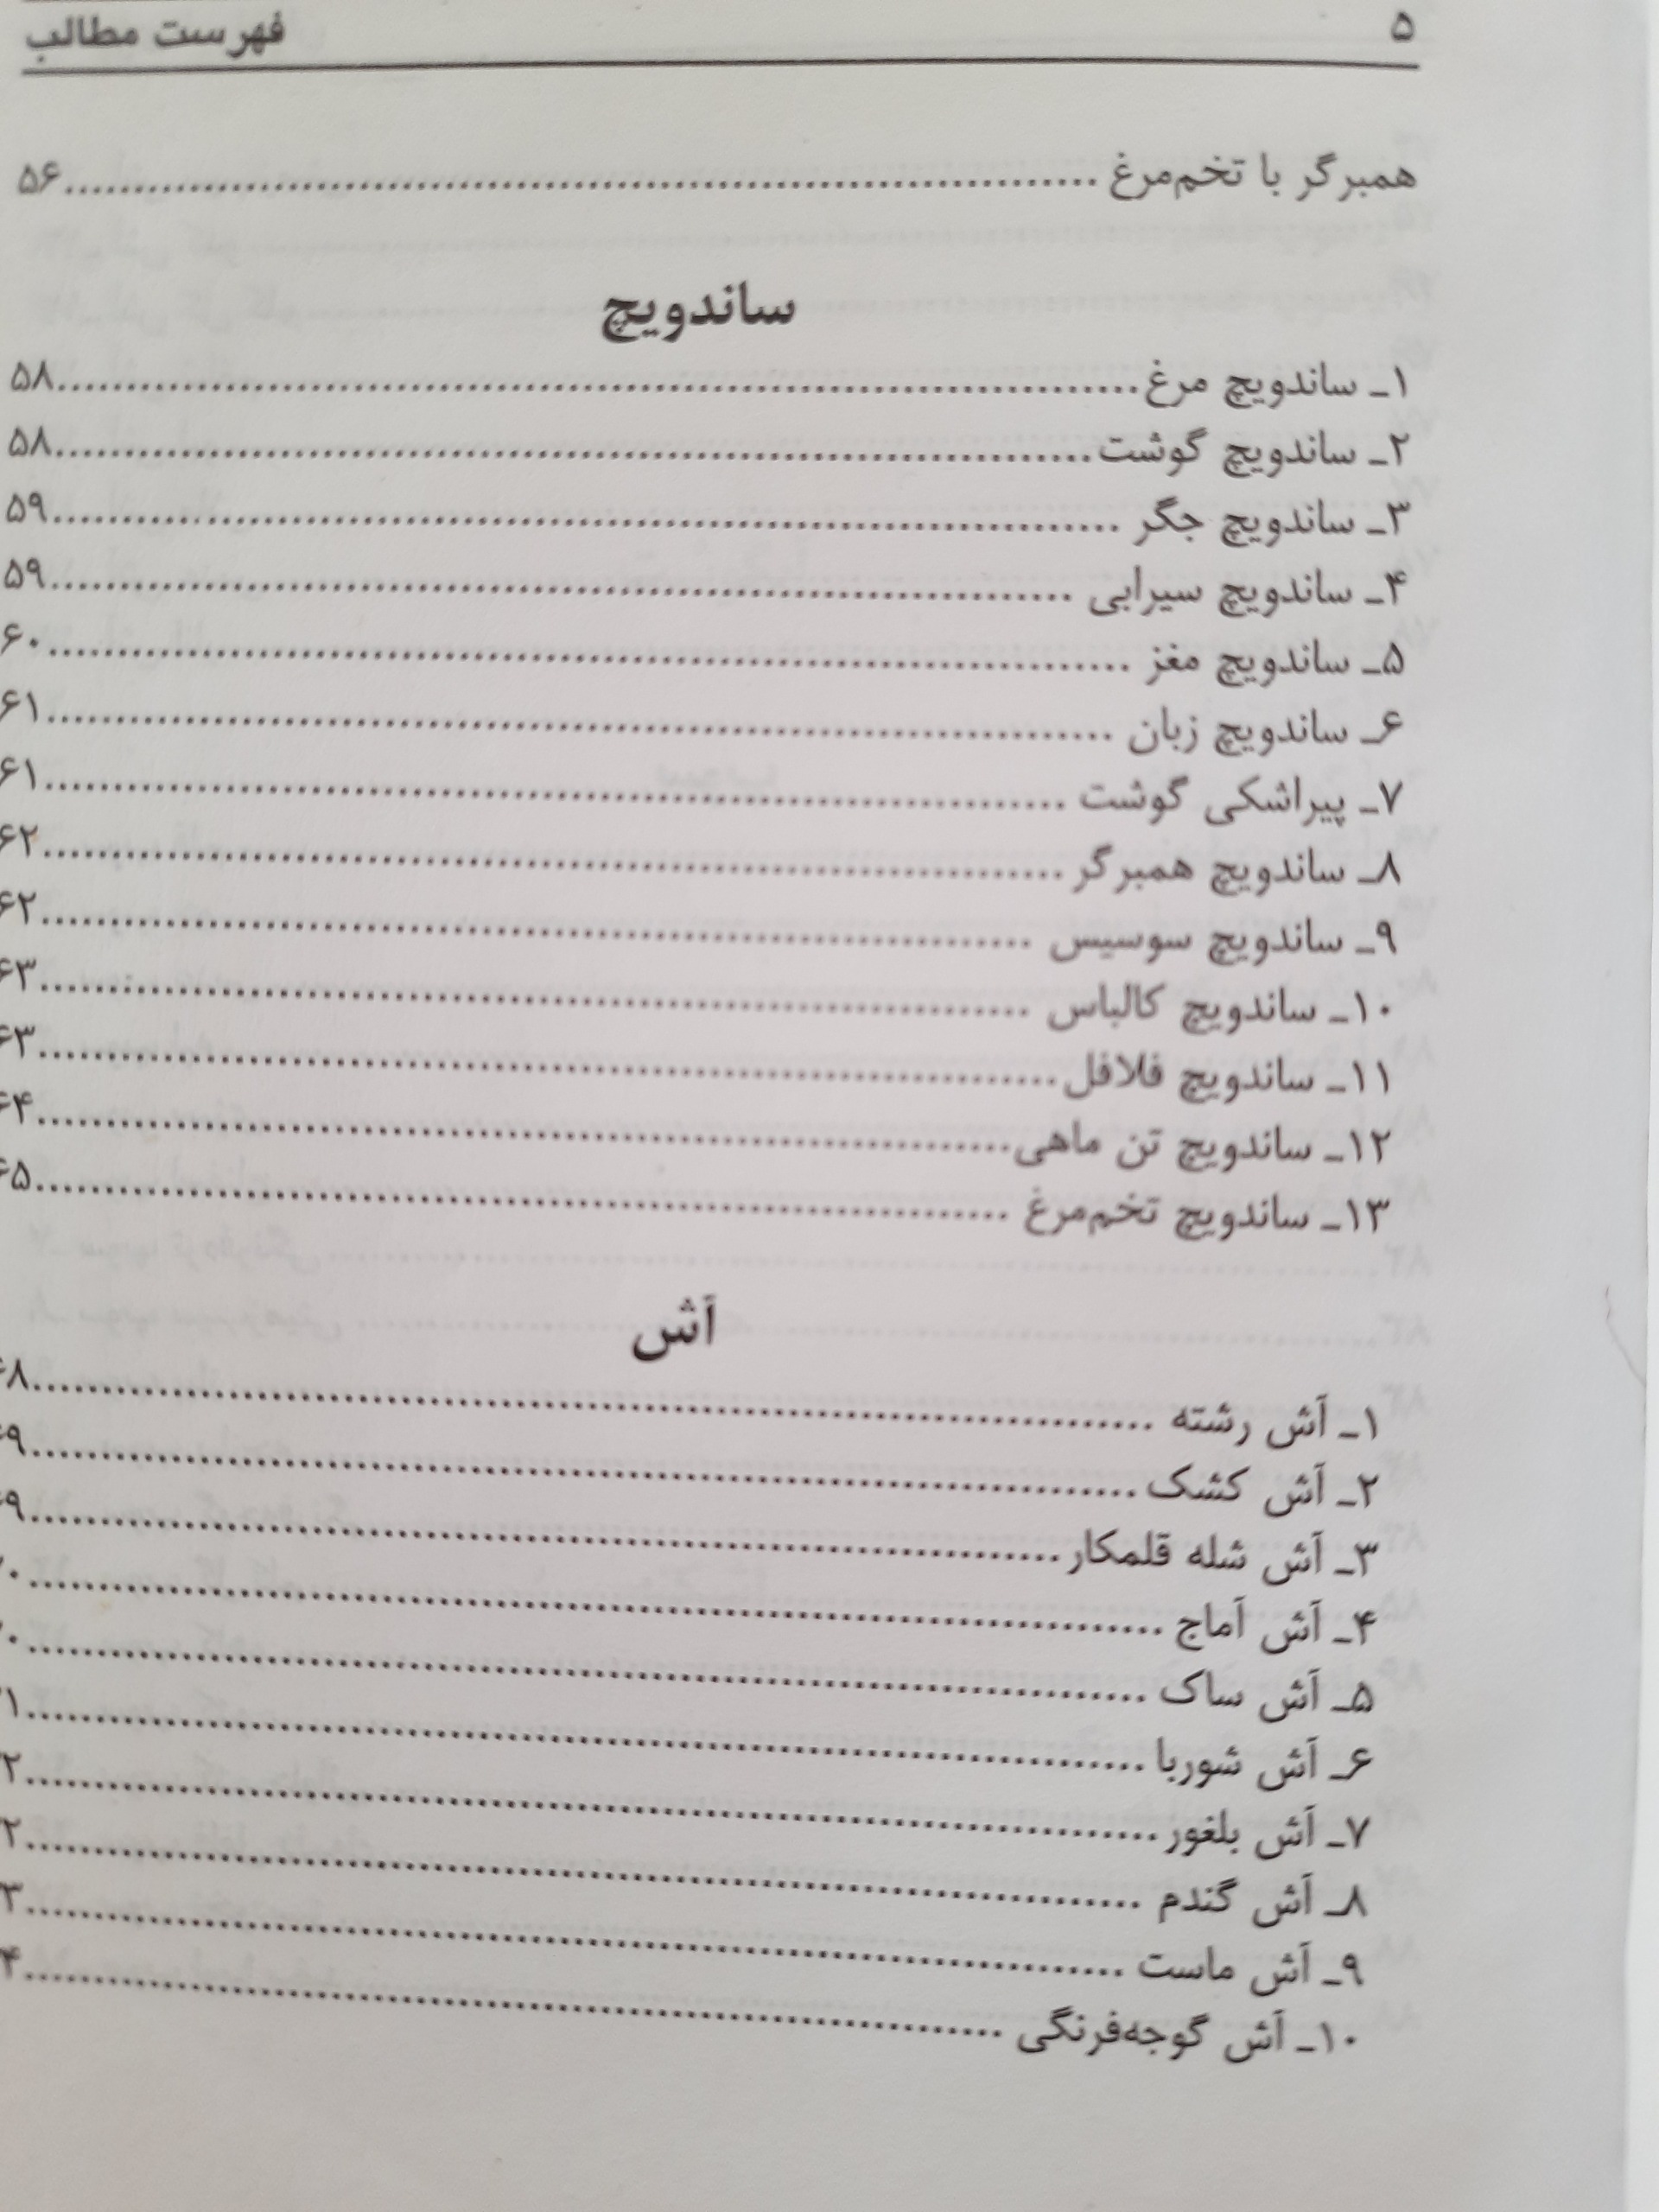 ۵ فهرست مطالب
همبرگر با تخم‌مرغ ........................ ۵۶
ساندویچ
۱ـ ساندویچ مرغ ........................ ۵۸
۲ـ ساندویچ گوشت ........................ ۵۸
۳ـ ساندویچ جگر ........................ ۵۹
۴ـ ساندویچ سیرابی ........................ ۵۹
۵ـ ساندویچ مغز ........................ ۶۰
۶ـ ساندویچ زبان ........................ ۶۱
۷ـ پیراشکی گوشت ........................ ۶۱
۸ـ ساندویچ همبرگر ........................ ۶۲
۹ـ ساندویچ سوسیس ........................ ۶۲
۱۰ـ ساندویچ کالباس ........................ ۶۳
۱۱ـ ساندویچ فلافل ........................ ۶۳
۱۲ـ ساندویچ تن ماهی ........................ ۶۴
۱۳ـ ساندویچ تخم‌مرغ ........................ ۶۵
آش
۱ـ آش رشته ........................
۲ـ آش کشک ........................
۳ـ آش شله قلمکار ........................
۴ـ آش آماج ........................
۵ـ آش ساک ........................
۶ـ آش شوربا ........................
۷ـ آش بلغور ........................
۸ـ آش گندم ........................
۹ـ آش ماست ........................
۱۰ـ آش گوجه‌فرنگی ........................